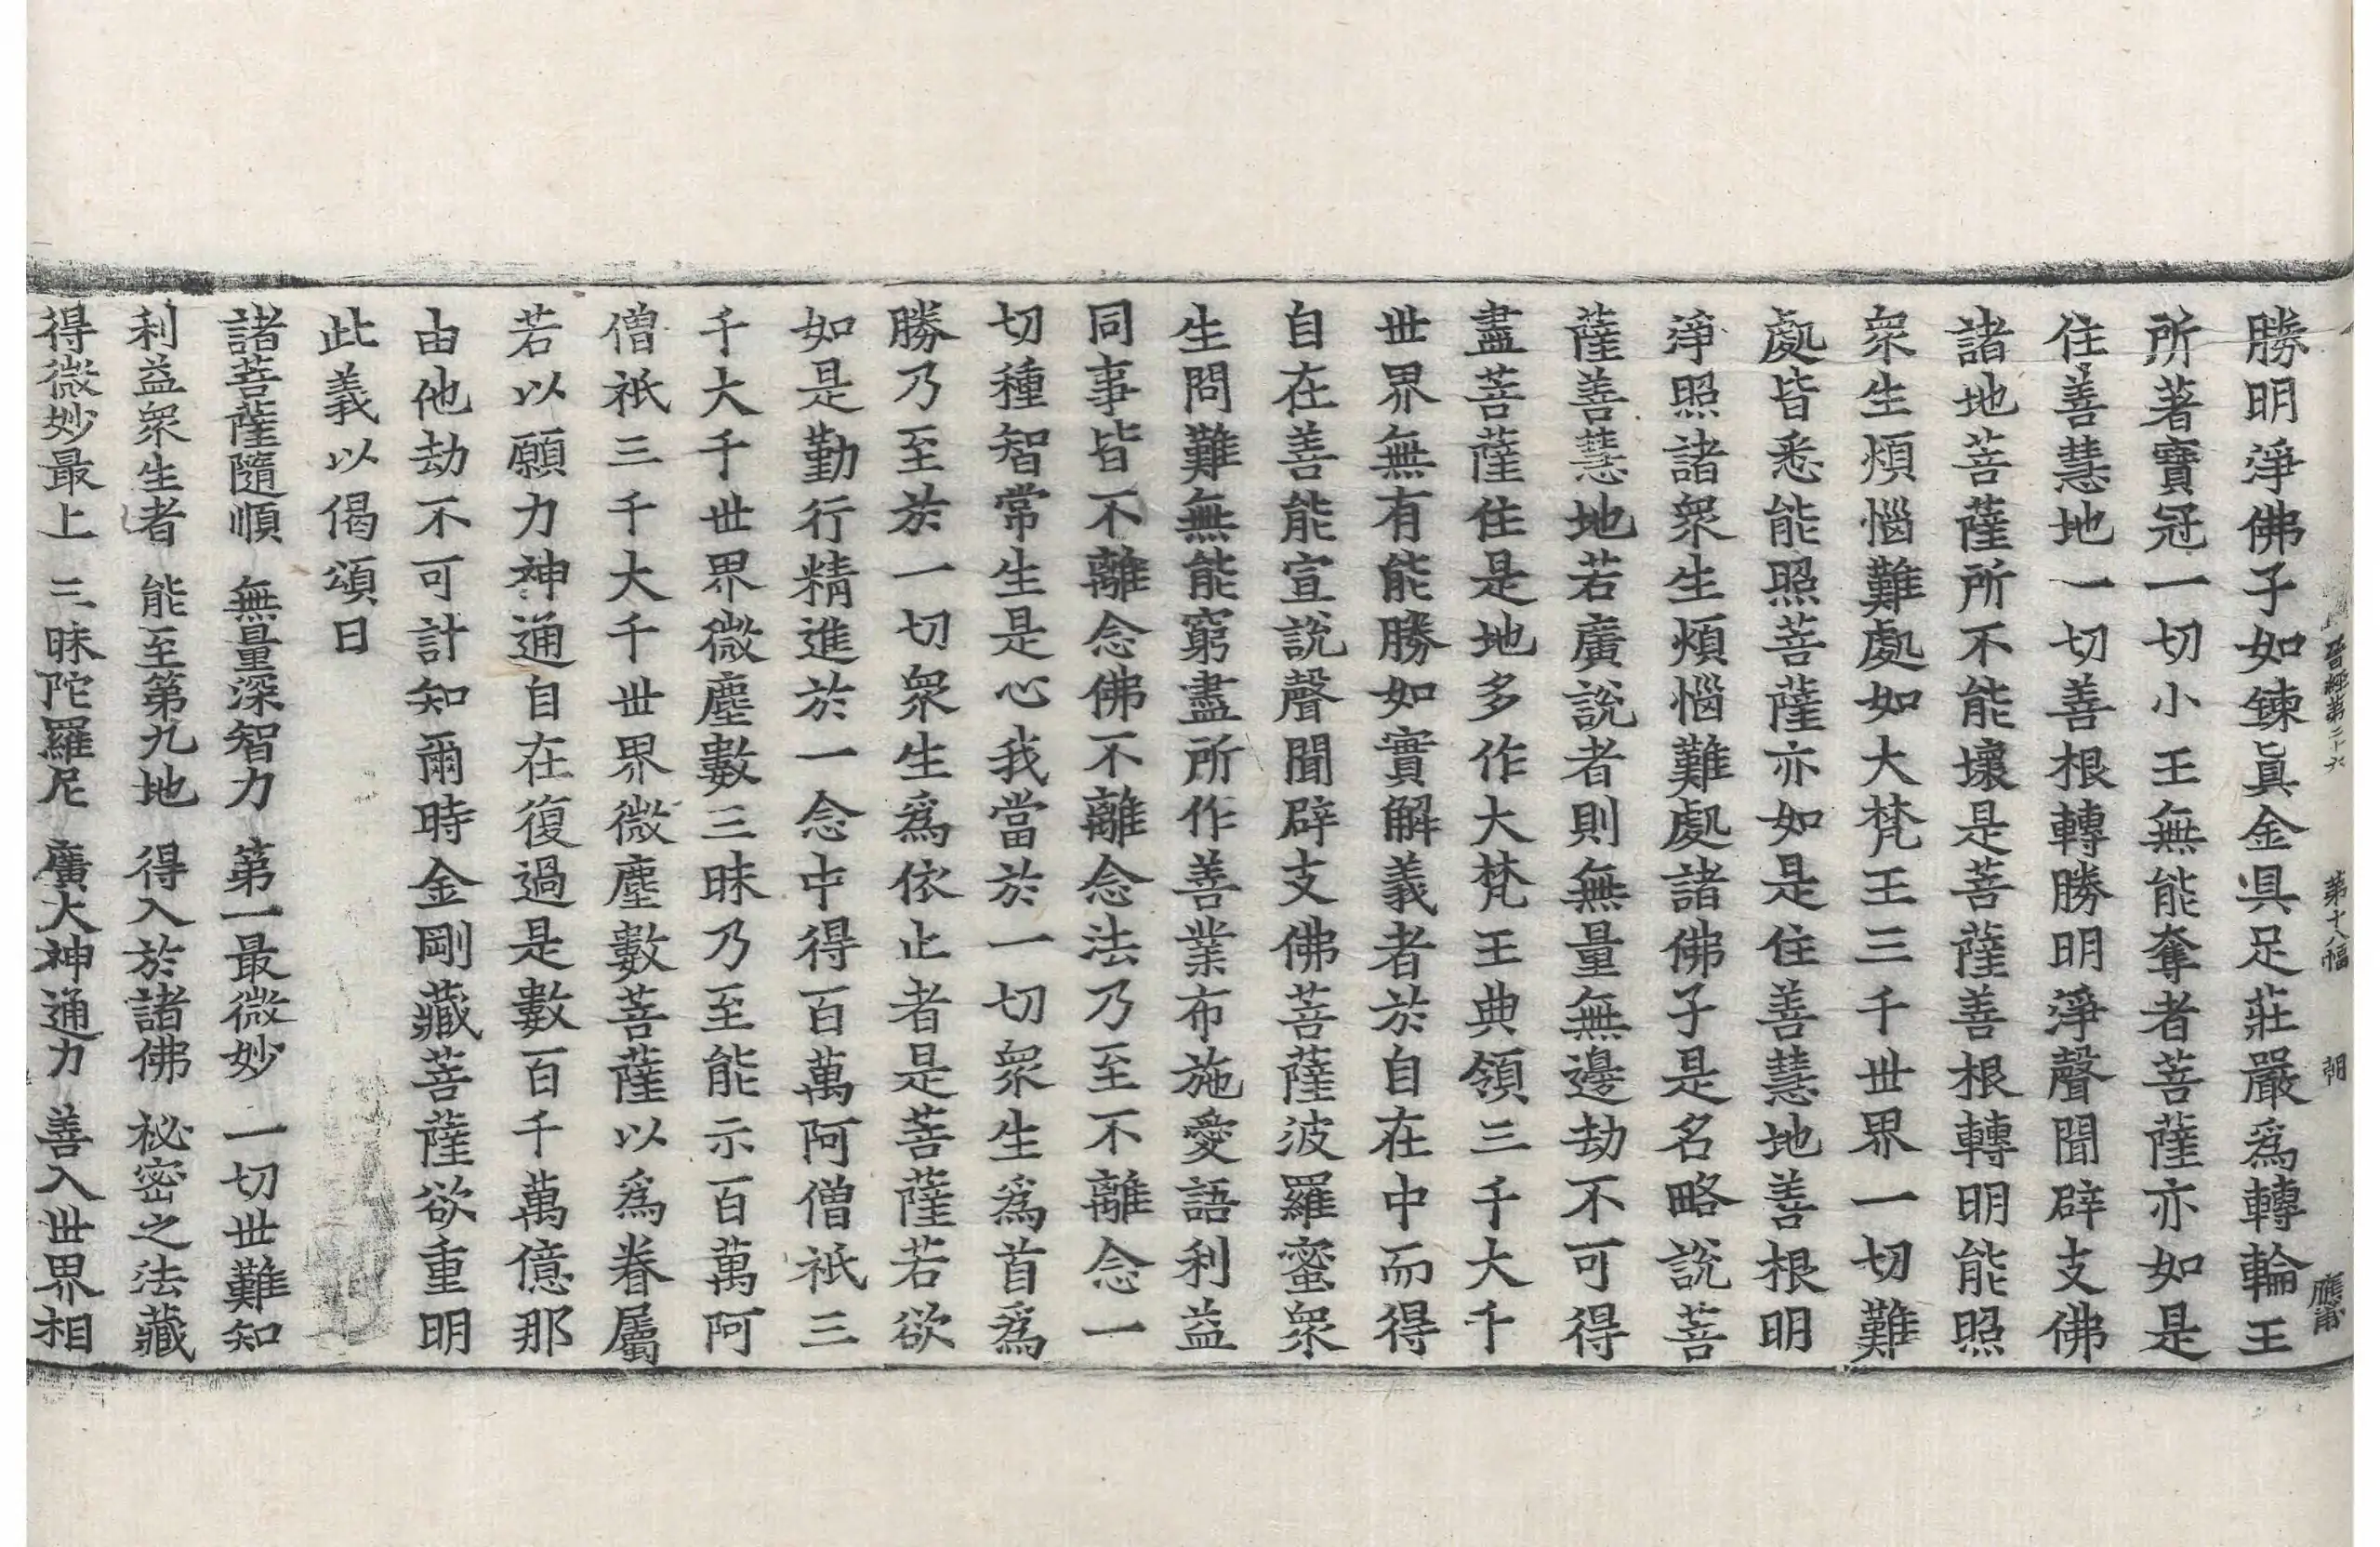 晉經第二十六 第十八幅 朔 應甫
勝明淨佛子如鍊眞金具足莊嚴爲轉輪王
所著寶冠一切小王無能奪者菩薩亦如是
住善慧地一切善根轉勝明淨聲聞辟支佛
諸地菩薩所不能壞是菩薩善根轉明能照
衆生煩惱難處如大梵王三千世界一切難
處皆悉能照菩薩亦如是住善慧地善根明
淨照諸衆生煩惱難處諸佛子是名略說菩
薩善慧地若廣說者則無量無邊劫不可得
盡菩薩住是地多作大梵王典領三千大千
世界無有能勝如實解義者於自在中而得
自在善能宣說聲聞辟支佛菩薩波羅蜜衆
生問難無能窮盡所作善業布施愛語利益
同事皆不離念佛不離念法乃至不離念一
切種智常生是心我當於一切衆生爲首爲
勝乃至於一切衆生爲依止者是菩薩若欲
如是勤行精進於一念中得百萬阿僧祇三
千大千世界微塵數三昧乃至能示百萬阿
僧祇三千大千世界微塵數菩薩以爲眷屬
若以願力神通自在復過是數百千萬億那
由他劫不可計知爾時金剛藏菩薩欲重明
此義以偈頌曰
諸菩薩隨順 無量深智力 第一最微妙 一切世難知
利益衆生者 能至第九地 得入於諸佛 秘密之法藏
得微妙最上 三昧陀羅尼 廣大神通力 善入世界相